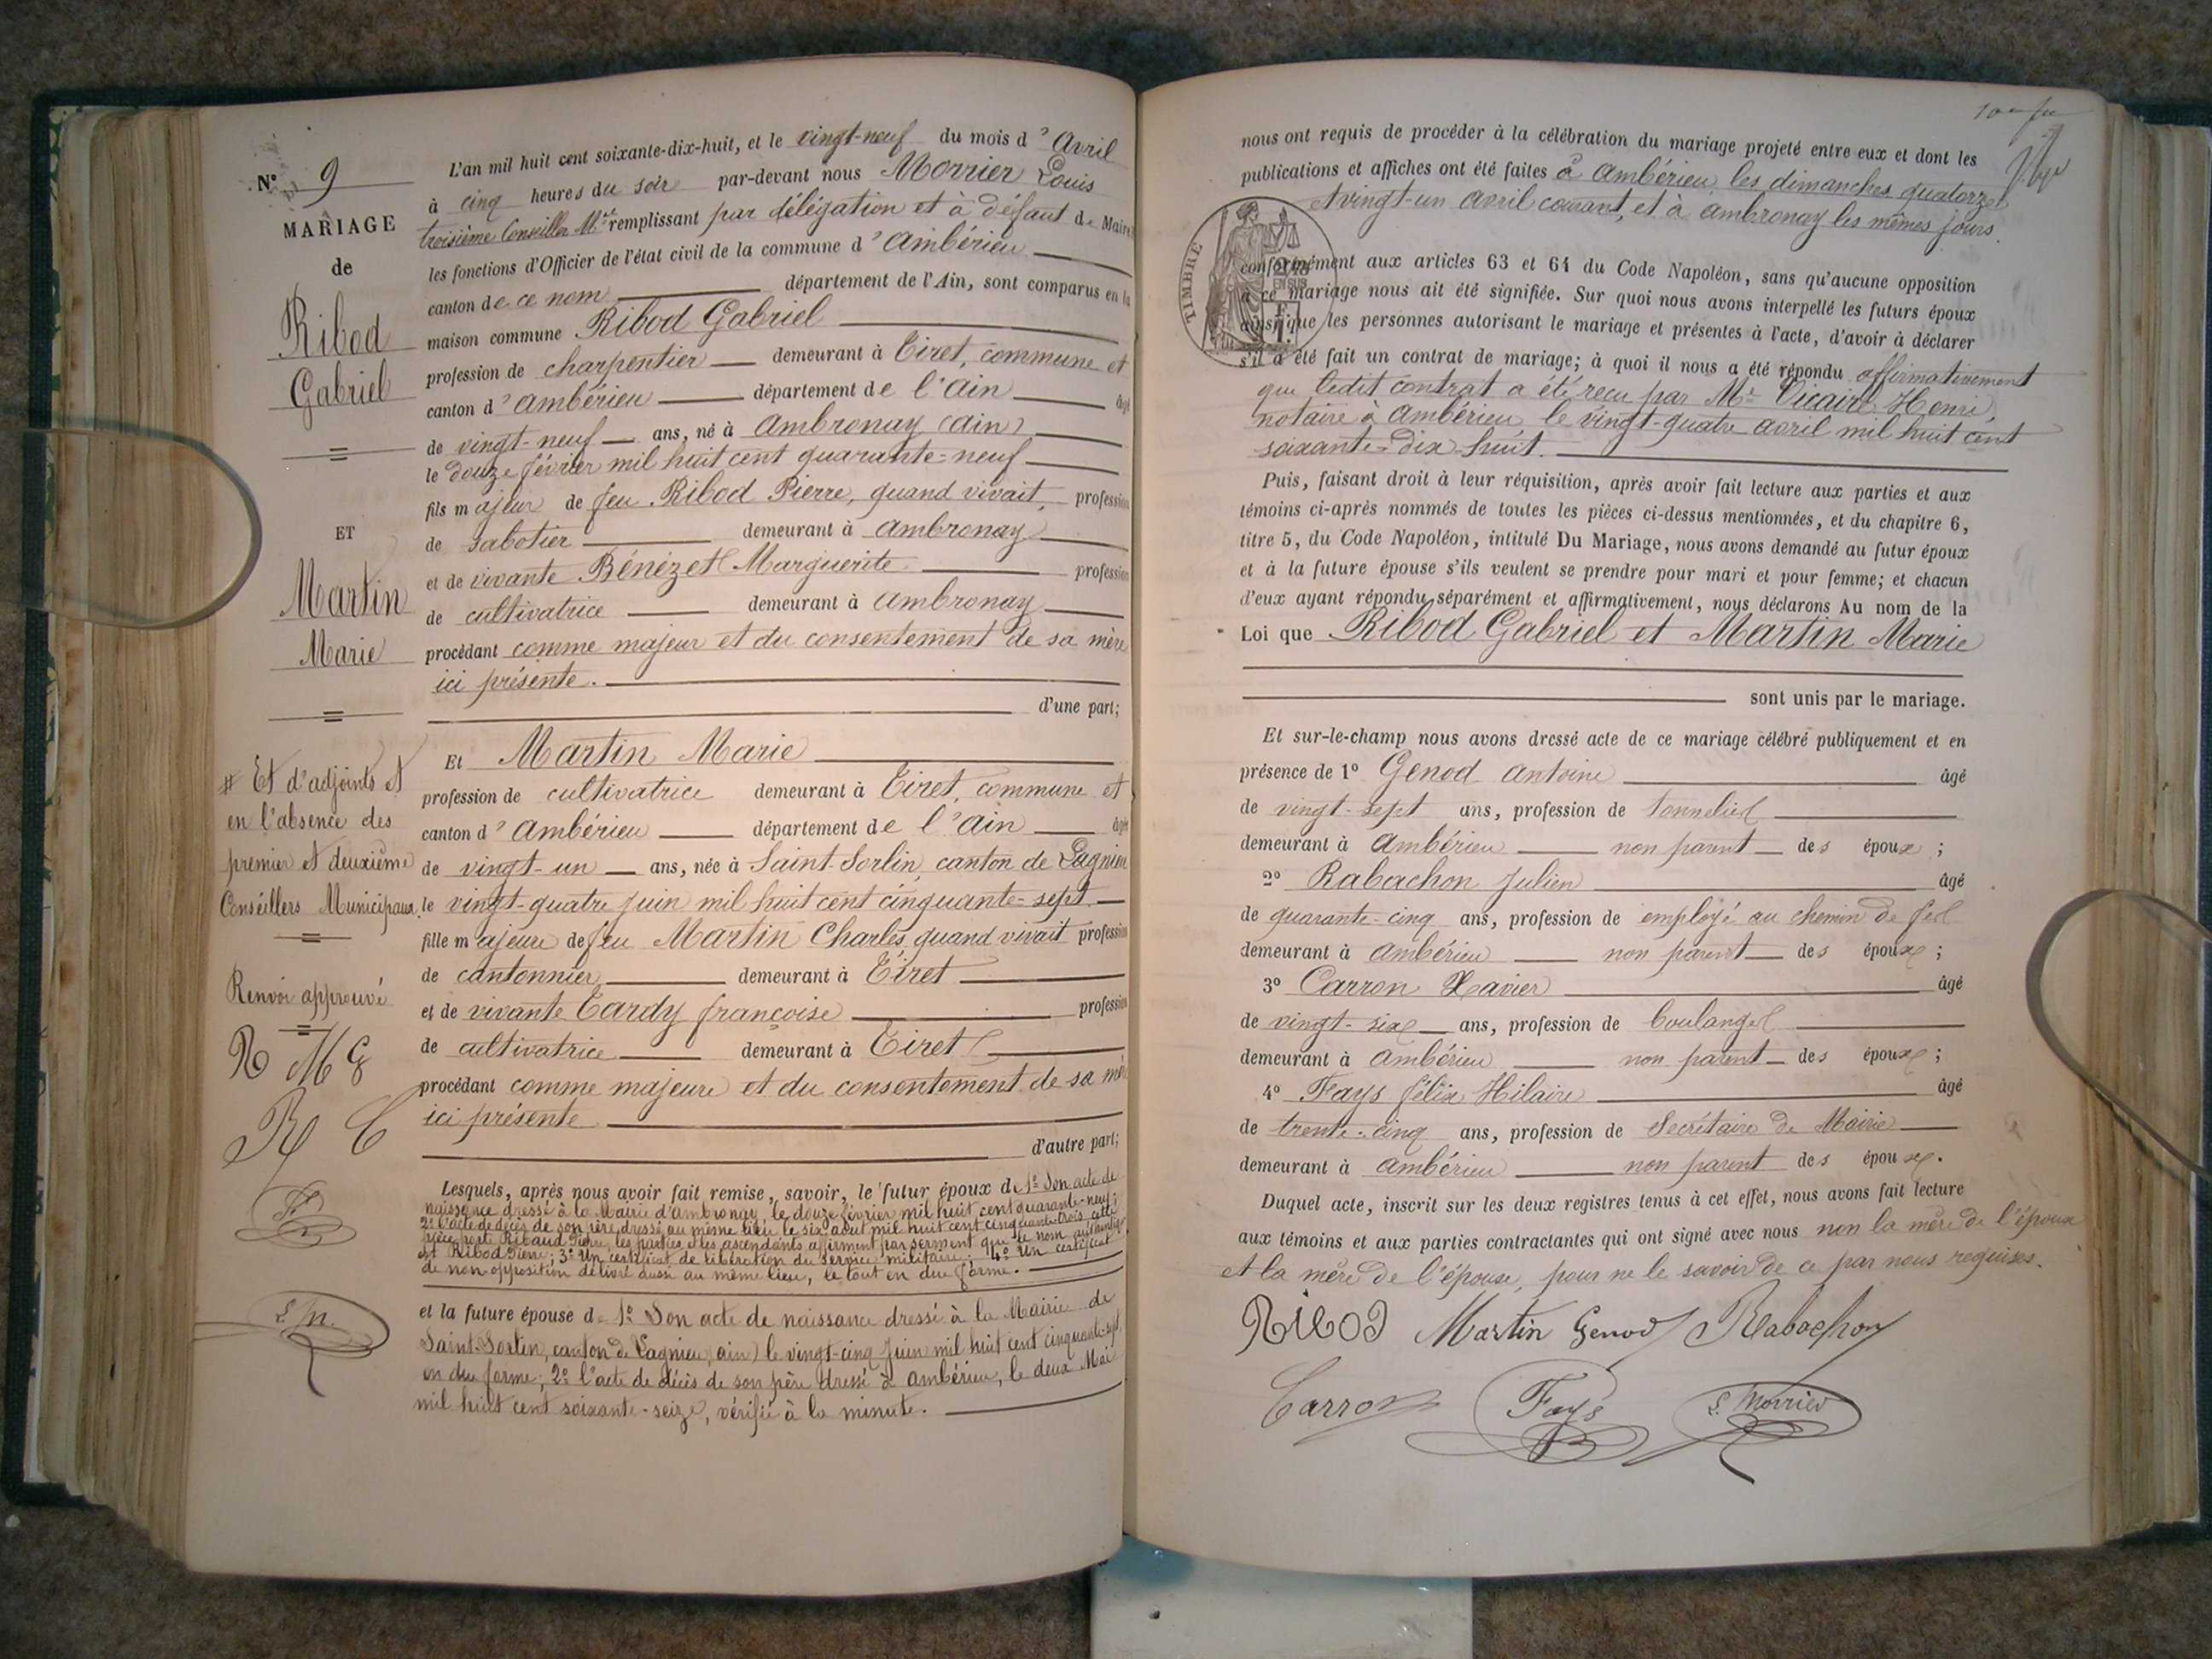 N° 9
MARIAGE
de
Ribod
Gabriel
ET
Martin
Marie
# Et d'adjoints et
en l'absence des
premier et deuxième
Conseillers Municipaux.
Renvoi approuvé
R M G
R C
F
L. M.
L'an mil huit cent soixante-dix-huit, et le vingt-neuf du mois d' Avril
à cinq heures du soir par-devant nous Morrier Louis
troisième Conseiller Mal remplissant par délégation et à défaut de Maire #
les fonctions d'Officier de l'état civil de la commune d' Ambérieu
canton de ce nom département de l'Ain, sont comparus en la
maison commune Ribod Gabriel
profession de charpentier demeurant à Tiret, commune et
canton d' Ambérieu département de l'Ain âgé
de vingt-neuf ans, né à Ambronay (Ain)
le douze février mil huit cent quarante-neuf
fils majeur de feu Ribod Pierre, quand vivait, profession
de sabotier demeurant à Ambronay
et de vivante Bénézet Marguerite profession
de cultivatrice demeurant à Ambronay
procédant comme majeur et du consentement de sa mère
ici présente.
d'une part;
Et Martin Marie
profession de cultivatrice demeurant à Tiret, commune et
canton d' Ambérieu département de l'Ain âgée
de vingt-un ans, née à Saint-Sorlin, canton de Lagnieu
le vingt-quatre juin mil huit cent cinquante-sept
fille majeure de feu Martin Charles, quand vivait profession
de cantonnier demeurant à Tiret
et de vivante Tardy françoise profession
de cultivatrice demeurant à Tiret
procédant comme majeure et du consentement de sa mère
ici présente
d'autre part;
Lesquels, après nous avoir fait remise, savoir, le futur époux de 1° Son acte de
naissance dressé à la Mairie d'Ambronay, le douze février mil huit cent quarante-neuf;
2° l'acte de décès de son père dressé au même lieu le six août mil huit cent cinquante-trois, cette
pièce porte Ribaud Pierre, les parties et les ascendants affirment par serment que le nom authentique
est Ribod Pierre; 3° Un certificat de libération du service militaire; 4° Un certificat
de non-opposition délivré aussi au même lieu, le tout en due forme.
et la future épouse de 1° Son acte de naissance dressé à la Mairie de
Saint-Sorlin, canton de Lagnieu, ain) le vingt-cinq Juin mil huit cent cinquante-sept,
en due forme; 2° l'acte de décès de son père dressé à Ambérieu, le deux Mai
mil huit cent soixante-seize, vérifié à la minute.
nous ont requis de procéder à la célébration du mariage projeté entre eux et dont les
publications et affiches ont été faites à Ambérieu, les dimanches quatorze
et vingt-un avril courant, et à Ambronay les mêmes jours.
TIMBRE
conformément aux articles 63 et 64 du Code Napoléon, sans qu'aucune opposition
à ce mariage nous ait été signifiée. Sur quoi nous avons interpellé les futurs époux
ainsi que les personnes autorisant le mariage et présentes à l'acte, d'avoir à déclarer
s'il a été fait un contrat de mariage; à quoi il nous a été répondu affirmativement
que ledit contrat a été reçu par Me Vicaire Henri,
notaire à Ambérieu, le vingt-quatre avril mil huit cent
soixante-dix-huit.
Puis, faisant droit à leur réquisition, après avoir fait lecture aux parties et aux
témoins ci-après nommés de toutes les pièces ci-dessus mentionnées, et du chapitre 6,
titre 5, du Code Napoléon, intitulé Du Mariage, nous avons demandé au futur époux
et à la future épouse s'ils veulent se prendre pour mari et pour femme; et chacun
d'eux ayant répondu séparément et affirmativement, nous déclarons Au nom de la
Loi que Ribod Gabriel et Martin Marie
sont unis par le mariage.
Et sur-le-champ nous avons dressé acte de ce mariage célébré publiquement et en
présence de 1° Genod Antoine âgé
de vingt-sept ans, profession de tonnelier
demeurant à Ambérieu non parent des époux;
2° Rabachon Julien âgé
de quarante-cinq ans, profession de employé au chemin de fer
demeurant à Ambérieu non parent des époux;
3° Carron Xavier âgé
de vingt-six ans, profession de boulanger
demeurant à Ambérieu non parent des époux;
4° Fays félix Hilaire âgé
de trente-cinq ans, profession de Secrétaire de Mairie
demeurant à Ambérieu non parent des époux.
Duquel acte, inscrit sur les deux registres tenus à cet effet, nous avons fait lecture
aux témoins et aux parties contractantes qui ont signé avec nous non la mère de l'époux
et la mère de l'épouse, pour ne le savoir de ce par nous requises.
RiBOD Martin Genod Rabachon
Carron Fays L. Morrier